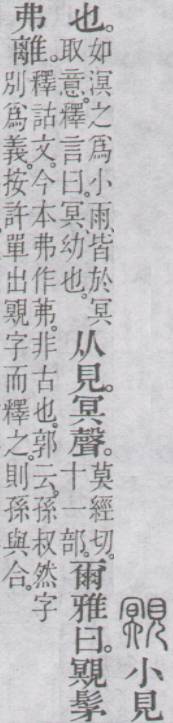 覭小見
也。如溟之爲小雨、皆於冥取意。釋言曰。冥、幼也。从見。冥聲。莫經切。十一部。爾雅曰。覭髳
弗離。釋詁文。今本弗作茀。非古也。郭云。孫叔然字別爲義。按許單出覭字而釋之。則孫與合。